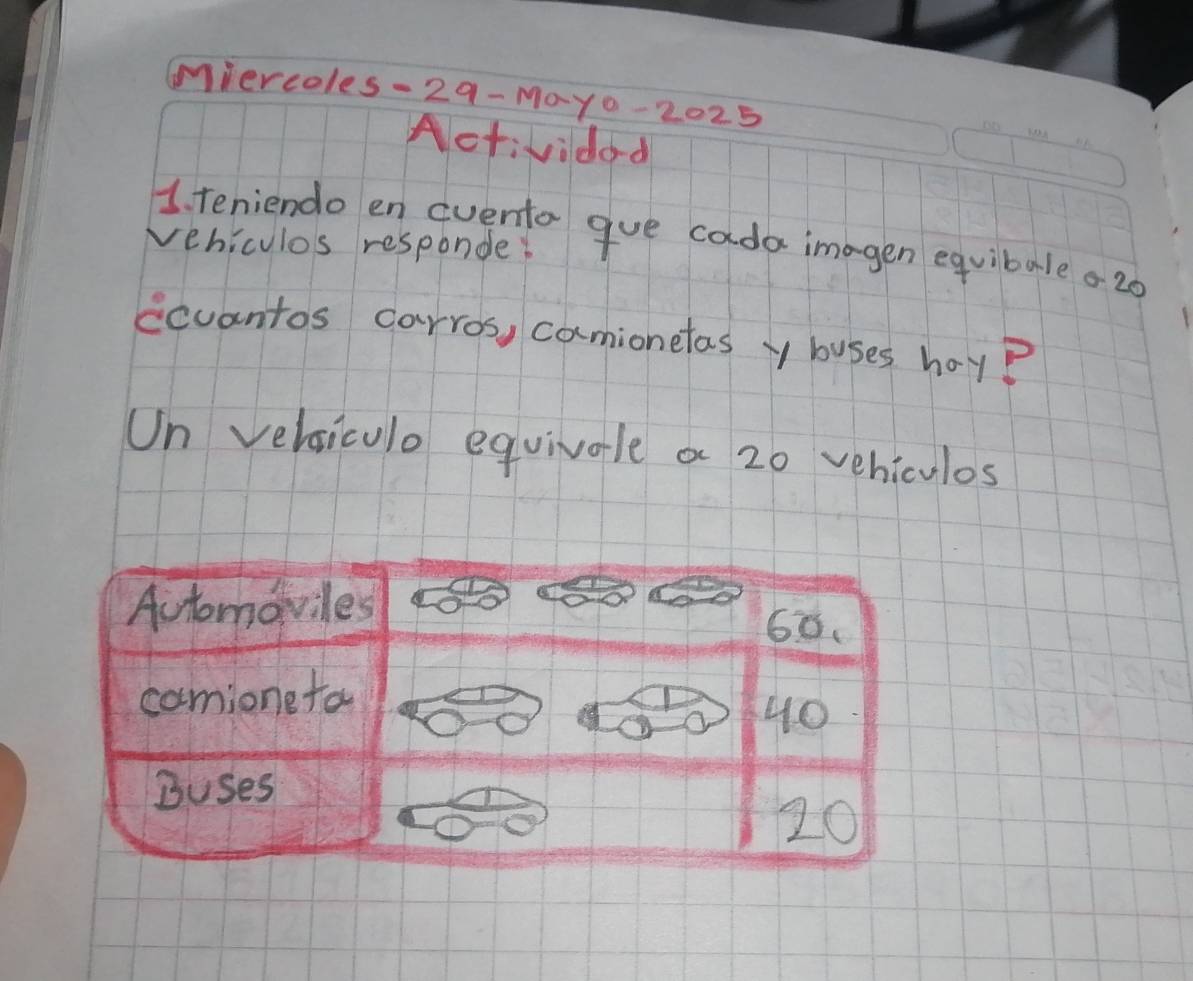 Miercoles-29-Mayo-2025
Actividad
1.Teniendo en cuenta que cada imagen equibale a 20
vehiculos responde:
¿cuantos carros, camionetas y buses hay?
Un vehiculo equivale a 20 vehiculos
Automóviles 60.
camioneta 40
Buses 20